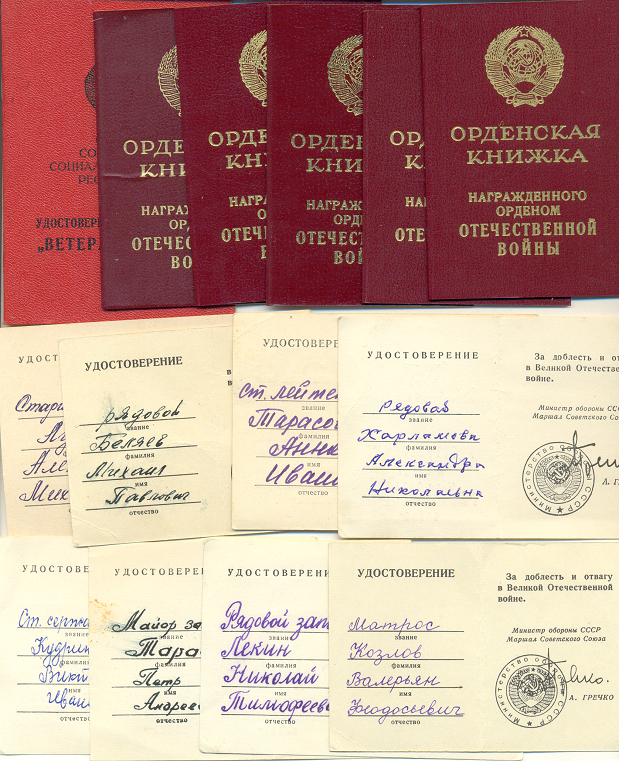 СО
СОЦИАЛ
РЕС
УДОСТОВЕР
„ВЕТЕРА
ОРДЕ
КНИЖ
НАГРАЖ
ОРД
ОТЕЧЕС
ВО
ОРДЕ
КНИ
НАГРАЖ
ОРД
ОТЕЧЕС
В
ОРДЕ
КНИ
НАГРАЖ
ОРДЕ
ОТЕЧЕС
ВО
ОРД
КН
НАГРА
О
ОТЕЧ
ОРДЕНСКАЯ
КНИЖКА
НАГРАЖДЕННОГО
ОРДЕНОМ
ОТЕЧЕСТВЕННОЙ
ВОЙНЫ
УДОСТ
Але
Миха
УДОСТОВЕРЕНИЕ
рядовой
звание
Беляев
фамилия
Михаил
имя
Павлович
отчество
УДОСТОВЕРЕ
ст. лейте
Тарасо
Анна
Иван
УДОСТОВЕРЕНИЕ
Рядовая
звание
Харламова
фамилия
Александра
имя
Николаевна
отчество
За доблесть и отва
в Великой Отечествен
войне.
Министр обороны СССР
Маршал Советского Сою
МИНИСТЕРСТВО ОБОРОНЫ СССР
А. ГРЕЧ
УДОСТОВЕРЕН
Ст. сержа
звание
Кудри
фамили
Викт
имя
Ива
отчество
УДОСТОВЕРЕ
Майор за
звание
Тара
фамилия
Петр
имя
Андрее
отчество
УДОСТОВЕРЕНИ
Рядовой зап
звание
Лекин
фамилия
Николай
имя
Тимофеев
отчество
УДОСТОВЕРЕНИЕ
Матрос
звание
Козлов
фамилия
Валерьян
имя
Феодосьевич
отчество
За доблесть и отвагу
в Великой Отечественной
войне.
Министр обороны СССР
Маршал Советского Союза
МИНИСТЕРСТВО ОБОРОНЫ СССР
А. ГРЕЧКО